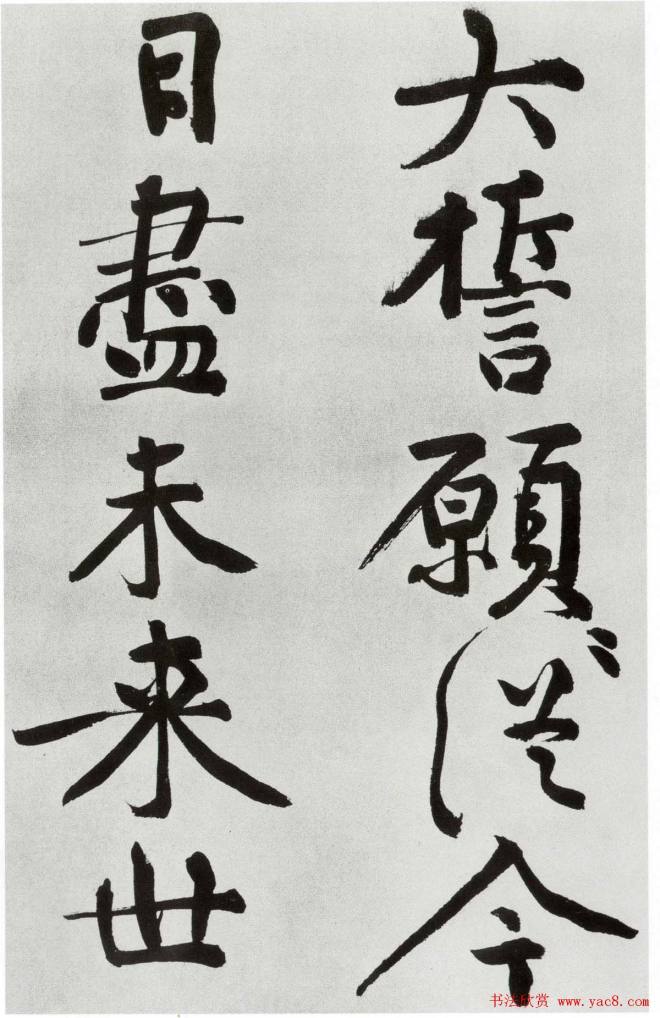 大誓願從今
日盡未来世
书法欣赏 www.yac8.com